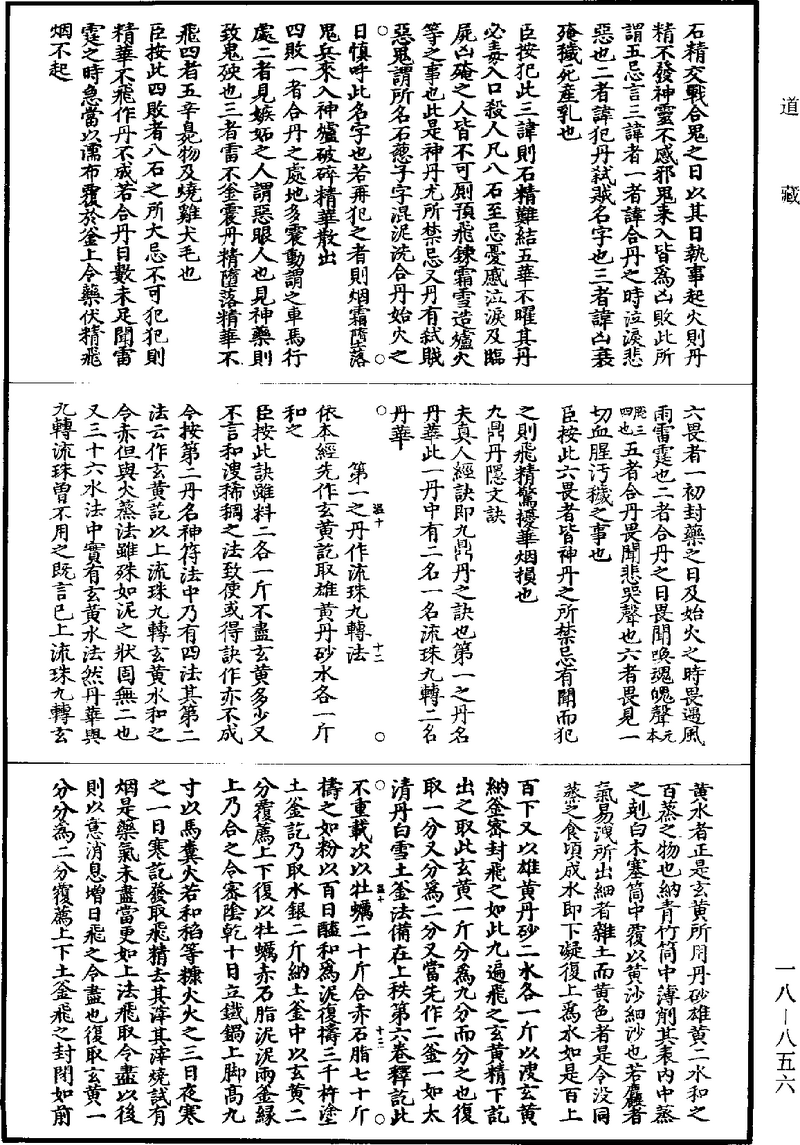 道藏
石精交戰合鬼之日以其日執事起火則丹
精不發神靈不感邪鬼來入皆為凶敗此所
謂五忌言三諱者一者諱合丹之時泣淚悲
惡也二者諱犯丹弒賊名字也三者諱凶衰
殗穢死產乳也
臣按犯此三諱則石精難結五華不曜其丹
必毒入口殺人凡八石至忌憂慼泣淚及臨
屍凶殗之人皆不可廁預飛鍊霜雪造爐火
等之事也此是神丹尤所禁忌又丹有弒賊
惡鬼謂所名石葱子字混泥洗合丹始火之
日慎呼此名字也若再犯之者則烟霜墮落
鬼兵來入神爐破碎精華散出
四敗一者合丹之處地多震動謂之車馬行
處二者見嫉妬之人謂惡眼人也見神藥則
致鬼殃也三者雷不釜震丹精墮落精華不
飛四者五辛臭物及燒雞犬毛也
臣按此四敗者八石之所大忌不可犯犯則
精華不飛作丹不成若合丹日數未足聞雷
霆之時急當以濡布覆於釜上令藥伏精飛
烟不起
六畏者一初封藥之日及始火之時畏遇風
雨雷霆也二者合丹之日畏聞喚魂魄聲元本
脫三四也五者合丹畏聞悲哭聲也六者畏見一
切血腥污穢之事也
臣按此六畏者皆神丹之所禁忌有聞而犯
之則飛精驚擾華烟損也
九鼎丹隱文訣
夫真人經訣即九鼎丹之訣也第一之丹名
丹華此一丹中有二名一名流珠九轉二名
丹華
温十 十二
第一之丹作流珠九轉法
依本經先作玄黄訖取雄黄丹砂水各一斤
和之
臣按此訣雖料二各一斤不盡玄黄多少又
不言和溲稀稠之法致使或得訣作亦不成
今按第二丹名神符法中乃有四法其第二
法云作玄黄訖以上流珠九轉玄黄水和之
令赤但與火蒸法雖殊如泥之狀固無二也
又三十六水法中實有玄黄水法然丹華與
九轉流珠曾不用之既言已上流珠九轉玄
黄水者正是玄黄所用丹砂雄黄二水和之
百蒸之物也納青竹筒中薄削其表內中蒸
之剋白木塞筒中覆以黄沙細沙也若麤者
氣易洩所出細者雜土而黄色者是令没同
蒸之食頃成水即下凝復上為水如是百上
百下又以雄黄丹砂二水各一斤以溲玄黄
納釜密封飛之如此九遍飛之玄黄精下訖
出之取此玄黄一斤分為九分而分之也復
取一分又分為二分又當先作二釜一如太
清丹白雪土釜法備在上秩第六卷釋訖此
温十 十三
不重載次以牡蠣二十斤合赤石脂七十斤
擣之如粉以百日醯和為泥復擣三千杵塗
土釜訖乃取水銀二斤納土釜中以玄黄二
分覆薦上下復以牡蠣赤石脂泥泥兩釜緣
上乃合之令密陰乾十日立鐵鍋上脚高九
寸以馬糞火若和稻等糠火火之三日夜寒
之一日寒訖發取飛精去其滓其滓燒試有
烟是藥氣未盡當更如上法飛取令盡以後
則以意消息增日飛之令盡也復取玄黄一
分分為二分覆薦上下土釜飛之封閉如前
一八－八五六